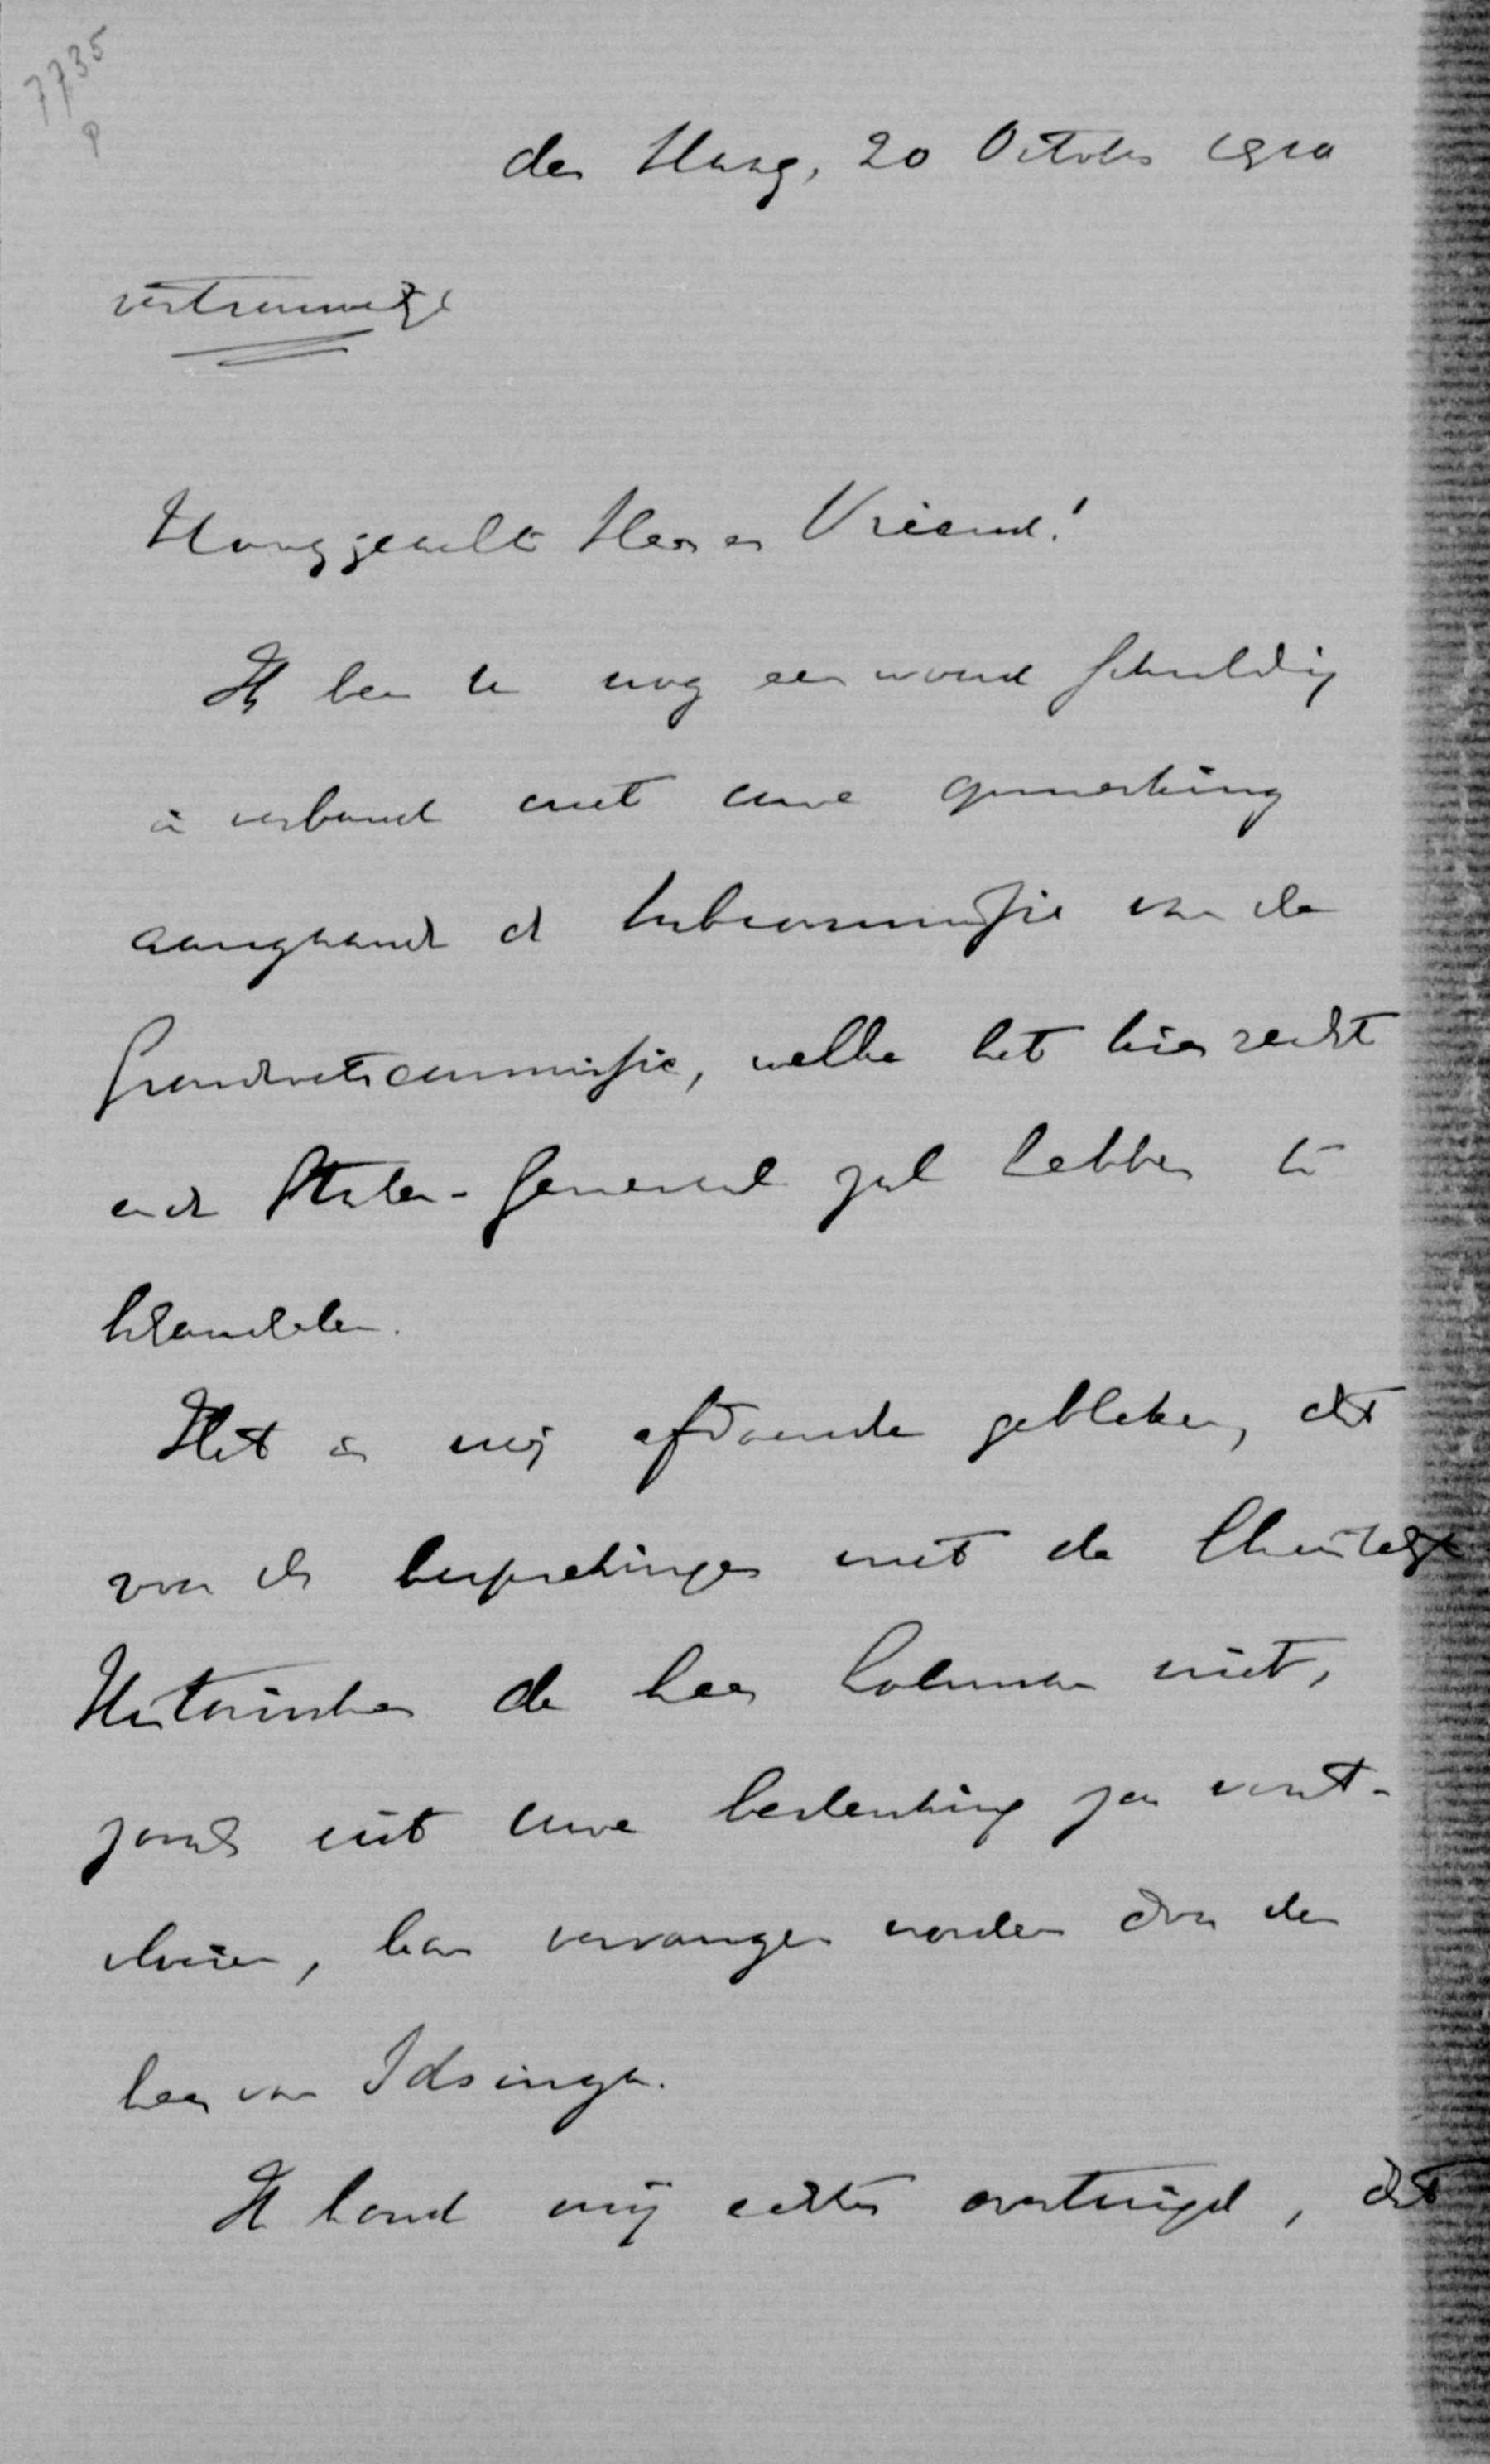 7735
den Haag, 20 October 1910
vertrouwelijk
Hooggeachte Heer en Vriend!
Ik ben U nog een woord schuldig
in verband met Uwe opmerking
aangaande de subcommissie van de
Grondwetscommissie, welke het kiesrecht
en de Staten-Generaal zal hebben te
behandelen.
Het is mij afdoende gebleken, dat
voor de besprekingen met de Christelijk
Historischen de heer Lohman niet,
zooals uit Uwe bedenking zou voort-
vloeien, kan vervangen worden door den
heer van Idsinga.
Ik houd mij echter overtuigd, dat